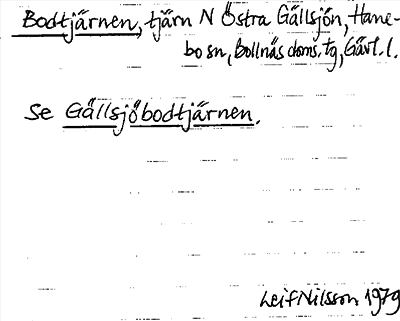 Bodtjärnen, tjärn N Östra Gällsjön, Hane-
bo sn, Bollnäs doms. tg, Gävl. l.
Se Gällsjöbodtjärnen.
Leif Nilsson 1979